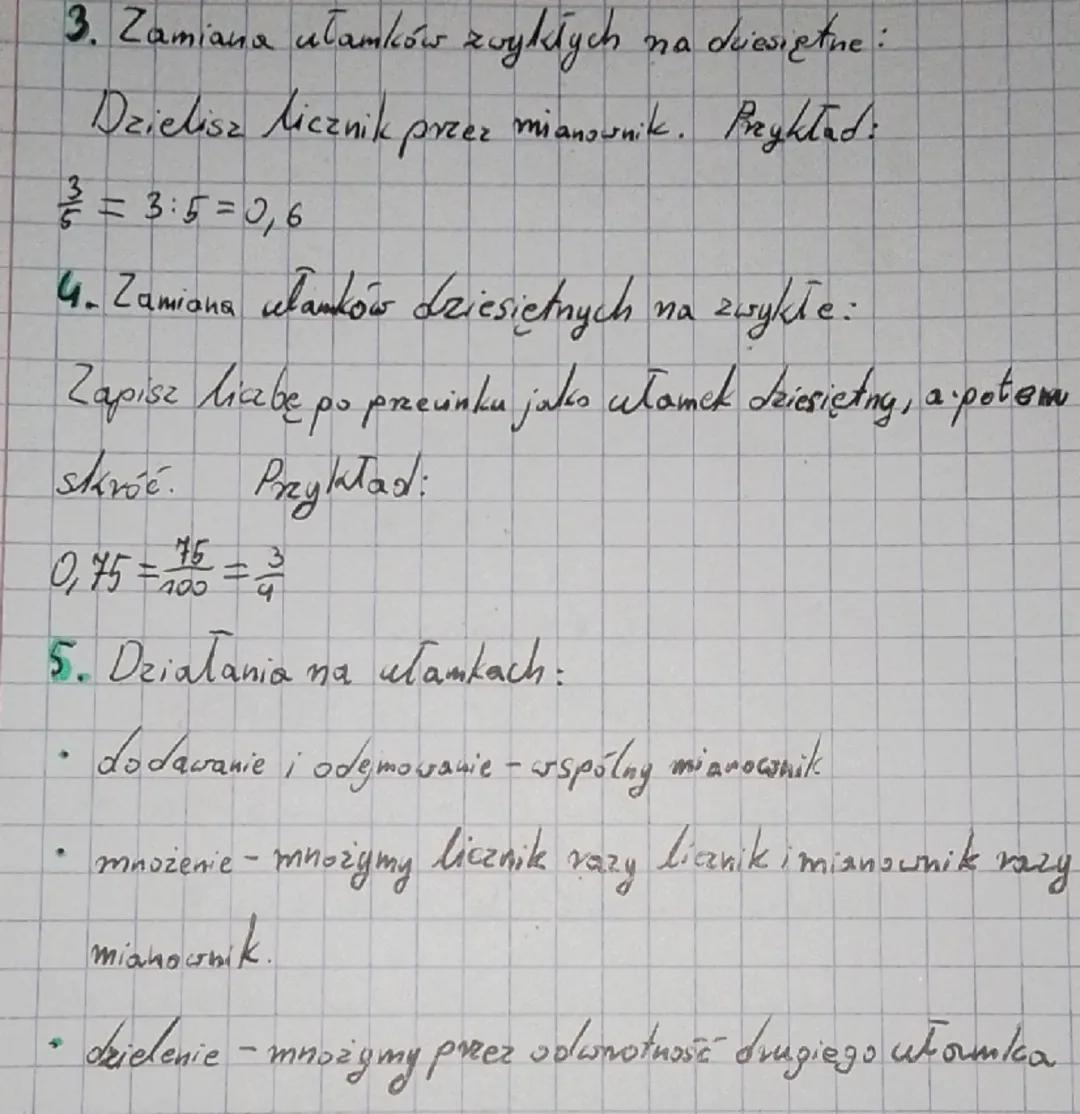 3. Zamiana ułamków zwykłych na dziesiętne:
Dzielisz licznik przez mianownik. Przykład:
3/5 = 3:5 = 0,6
4. Zamiana ułamków dziesiętnych na zwykłe:
Zapisz liczbę po przecinku jako ułamek dziesiętny, a potem
skróć. Przykład:
0,75 = 75/100 = 3/4
5. Działania na ułamkach:
• dodawanie i odejmowanie - wspólny mianownik
• mnożenie - mnożymy licznik razy licznik i mianownik razy
mianownik.
• dzielenie - mnożymy przez odwrotność drugiego ułamka